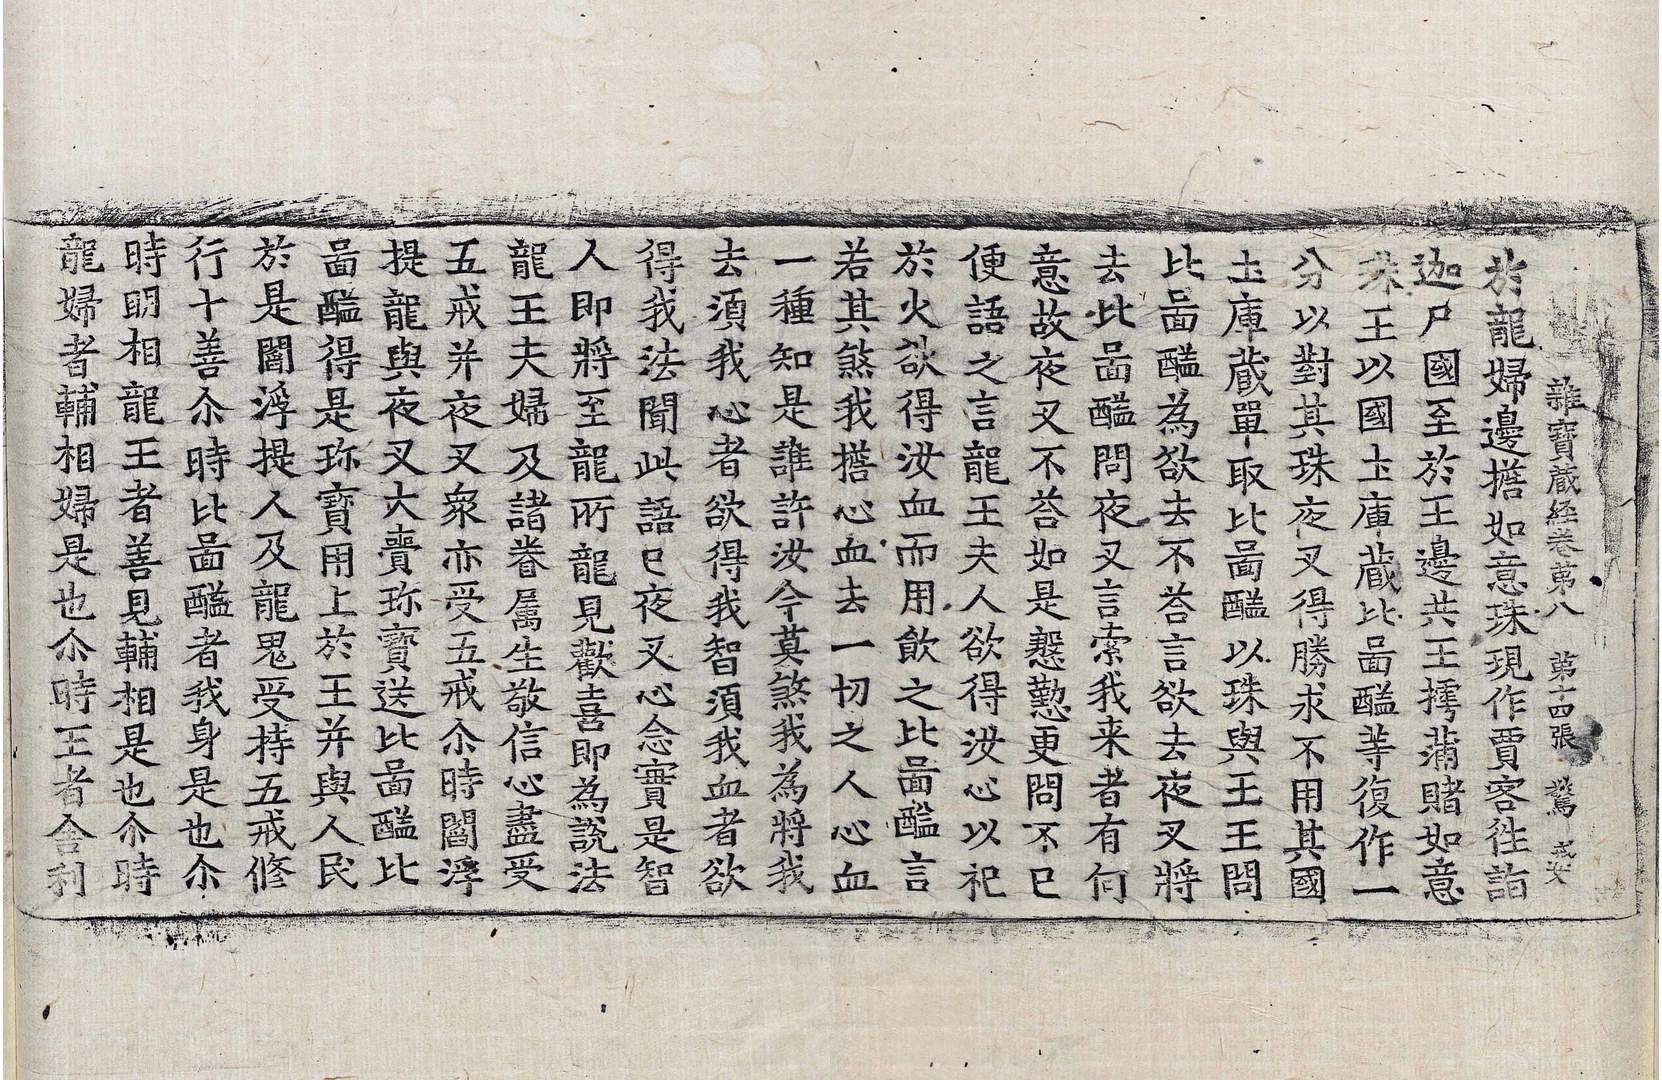 雜寶蔵経卷苐八　苐十四張　驚
於龍婦邊擔如意珠現作賈客徃詣
迦尸國至於王邊共王摴蒲賭如意
珠王以國圡庫蔵比啚醯等復作一
分以對其珠夜叉得勝求不用其國
圡庫蔵單取比啚醯以珠與王王問
比啚醯為欲去不荅言欲去夜叉將
去比啚醯問夜叉言索我来者有何
意故夜叉不荅如是慇懃更問不已
便語之言龍王夫人欲得汝心以祀
於火欲得汝血而用飲之比啚醯言
若其煞我擔心血去一切之人心血
一種知是誰許汝今莫煞我為將我
去須我心者欲得我智須我血者欲
得我法聞此語已夜叉心念實是智
人即將至龍所龍見歡喜即為說法
龍王夫婦及諸眷属生敬信心盡受
五戒并夜叉衆亦受五戒尒時閻浮
提龍與夜叉大賷珎寶送比啚醯比
啚醯得是珎寶用上於王并與人民
於是閻浮提人及龍鬼受持五戒修
行十善尒時比啚醯者我身是也尒
時明相龍王者善見輔相是也尒時
龍婦者輔相婦是也尒時王者舍利